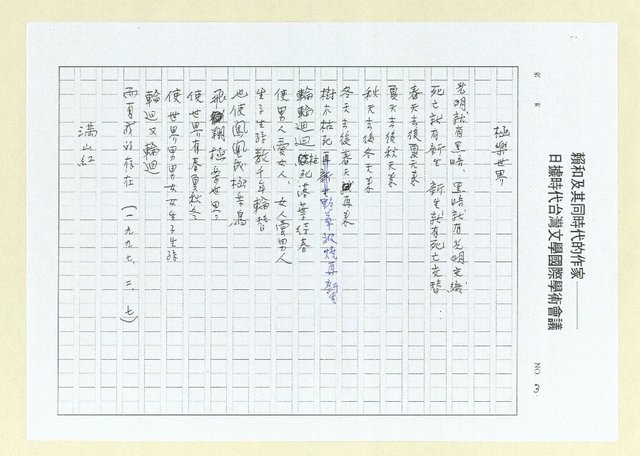 賴和及其同時代的作家——
日據時代台灣文學國際學術會議
NO 3
極樂世界
光明就有黑暗、黑暗就有光明交織
死亡就有新生 新生就有死亡交替
春天去後夏天來
夏天去後秋天來
秋天去後冬天來
冬天去後春天再來
樹木枯死再新生野草被燒再新生
輪迴枯死落葉待春
使男人愛女人、女人愛男人
生子生孫數千年輪替
也使鳳凰成極樂鳥
飛翔極樂世界
使世界有春夏秋冬
使世界男男女女生子生孫
輪迴又輪迴
而有我的存在 (一九九七、二、七)
滿山紅